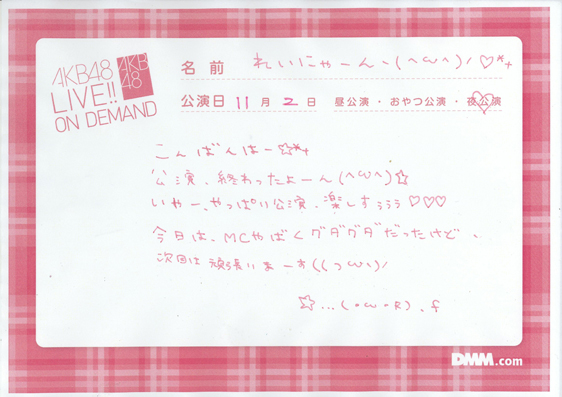 AKB48
LIVE!!
ON DEMAND
AKB
48
名前 れいにゃーん、(^ω^)ノ♡*+
公演日 11月2日 昼公演・おやつ公演・夜公演
こんばんはー☆*+
公演、終わったよーん(^ω^)☆
いやー、やっぱい公演、楽しすぅぅぅ♡♡♡
今日は、MCやばくグダグダだったけど、
次回は頑張りまーす((つω\)ノ
☆...(・ω・R).f
DMM.com